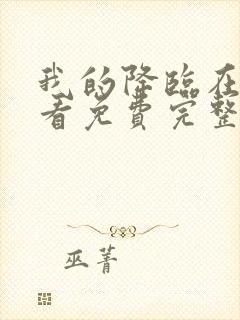 我的降临在
看免费完整
巫菁